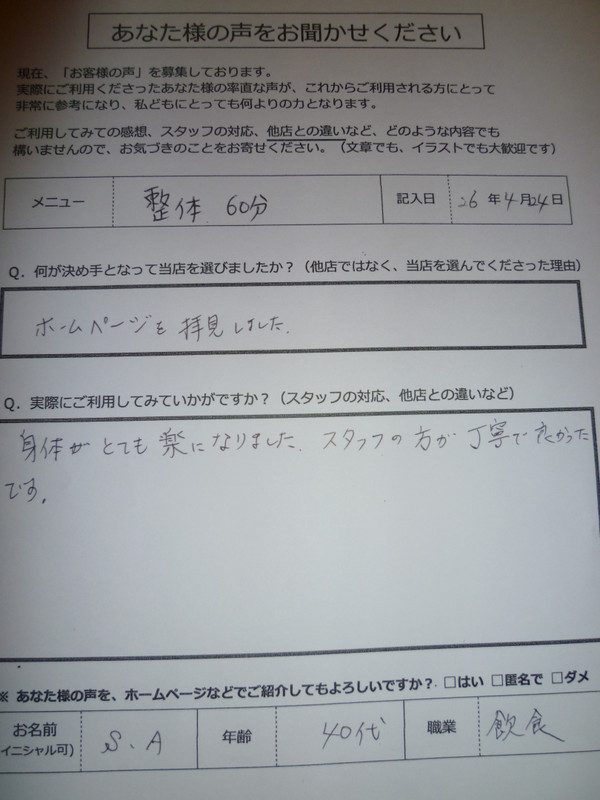 あなた様の声をお聞かせください
現在、「お客様の声」を募集しております。
実際にご利用くださったあなた様の率直な声が、これからご利用される方にとって
非常に参考になり、私どもにとっても何よりの力となります。
ご利用してみての感想、スタッフの対応、他店との違いなど、どのような内容でも
構いませんので、お気づきのことをお寄せください。（文章でも、イラストでも大歓迎です）
メニュー 整体 60分 記入日 26年4月24日
Q. 何が決め手となって当店を選びましたか？（他店ではなく、当店を選んでくださった理由）
ホームページを拝見しました.
Q. 実際にご利用してみていかがですか？（スタッフの対応、他店との違いなど）
身体がとても楽になりました. スタッフの方が丁寧で良かった
です。
※ あなた様の声を、ホームページなどでご紹介してもよろしいですか？ □はい □匿名で □ダメ
お名前 S.A 年齢 40代 職業 飲食
イニシャル可)